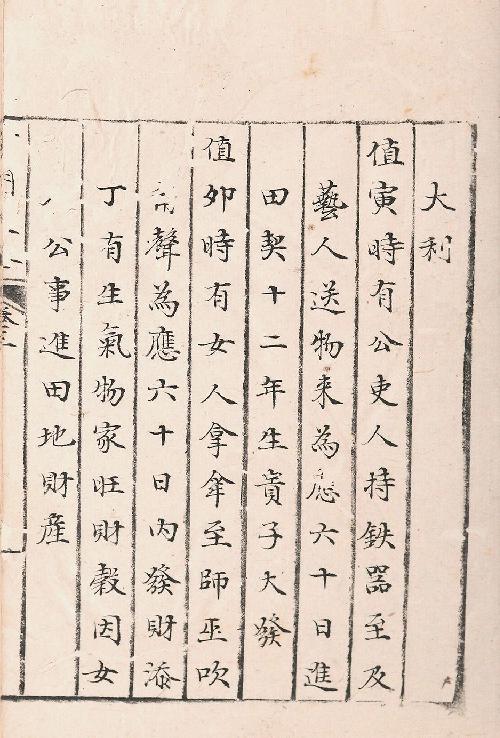 大利
值寅時有公吏人持鉄器至及
藝人送物来為應六十日進
田契十二年生貴子大發
值夘時有女人拿傘至師巫吹
聲為應六十日內發財添
丁有生氣物家旺財穀因女
公事進田地財產